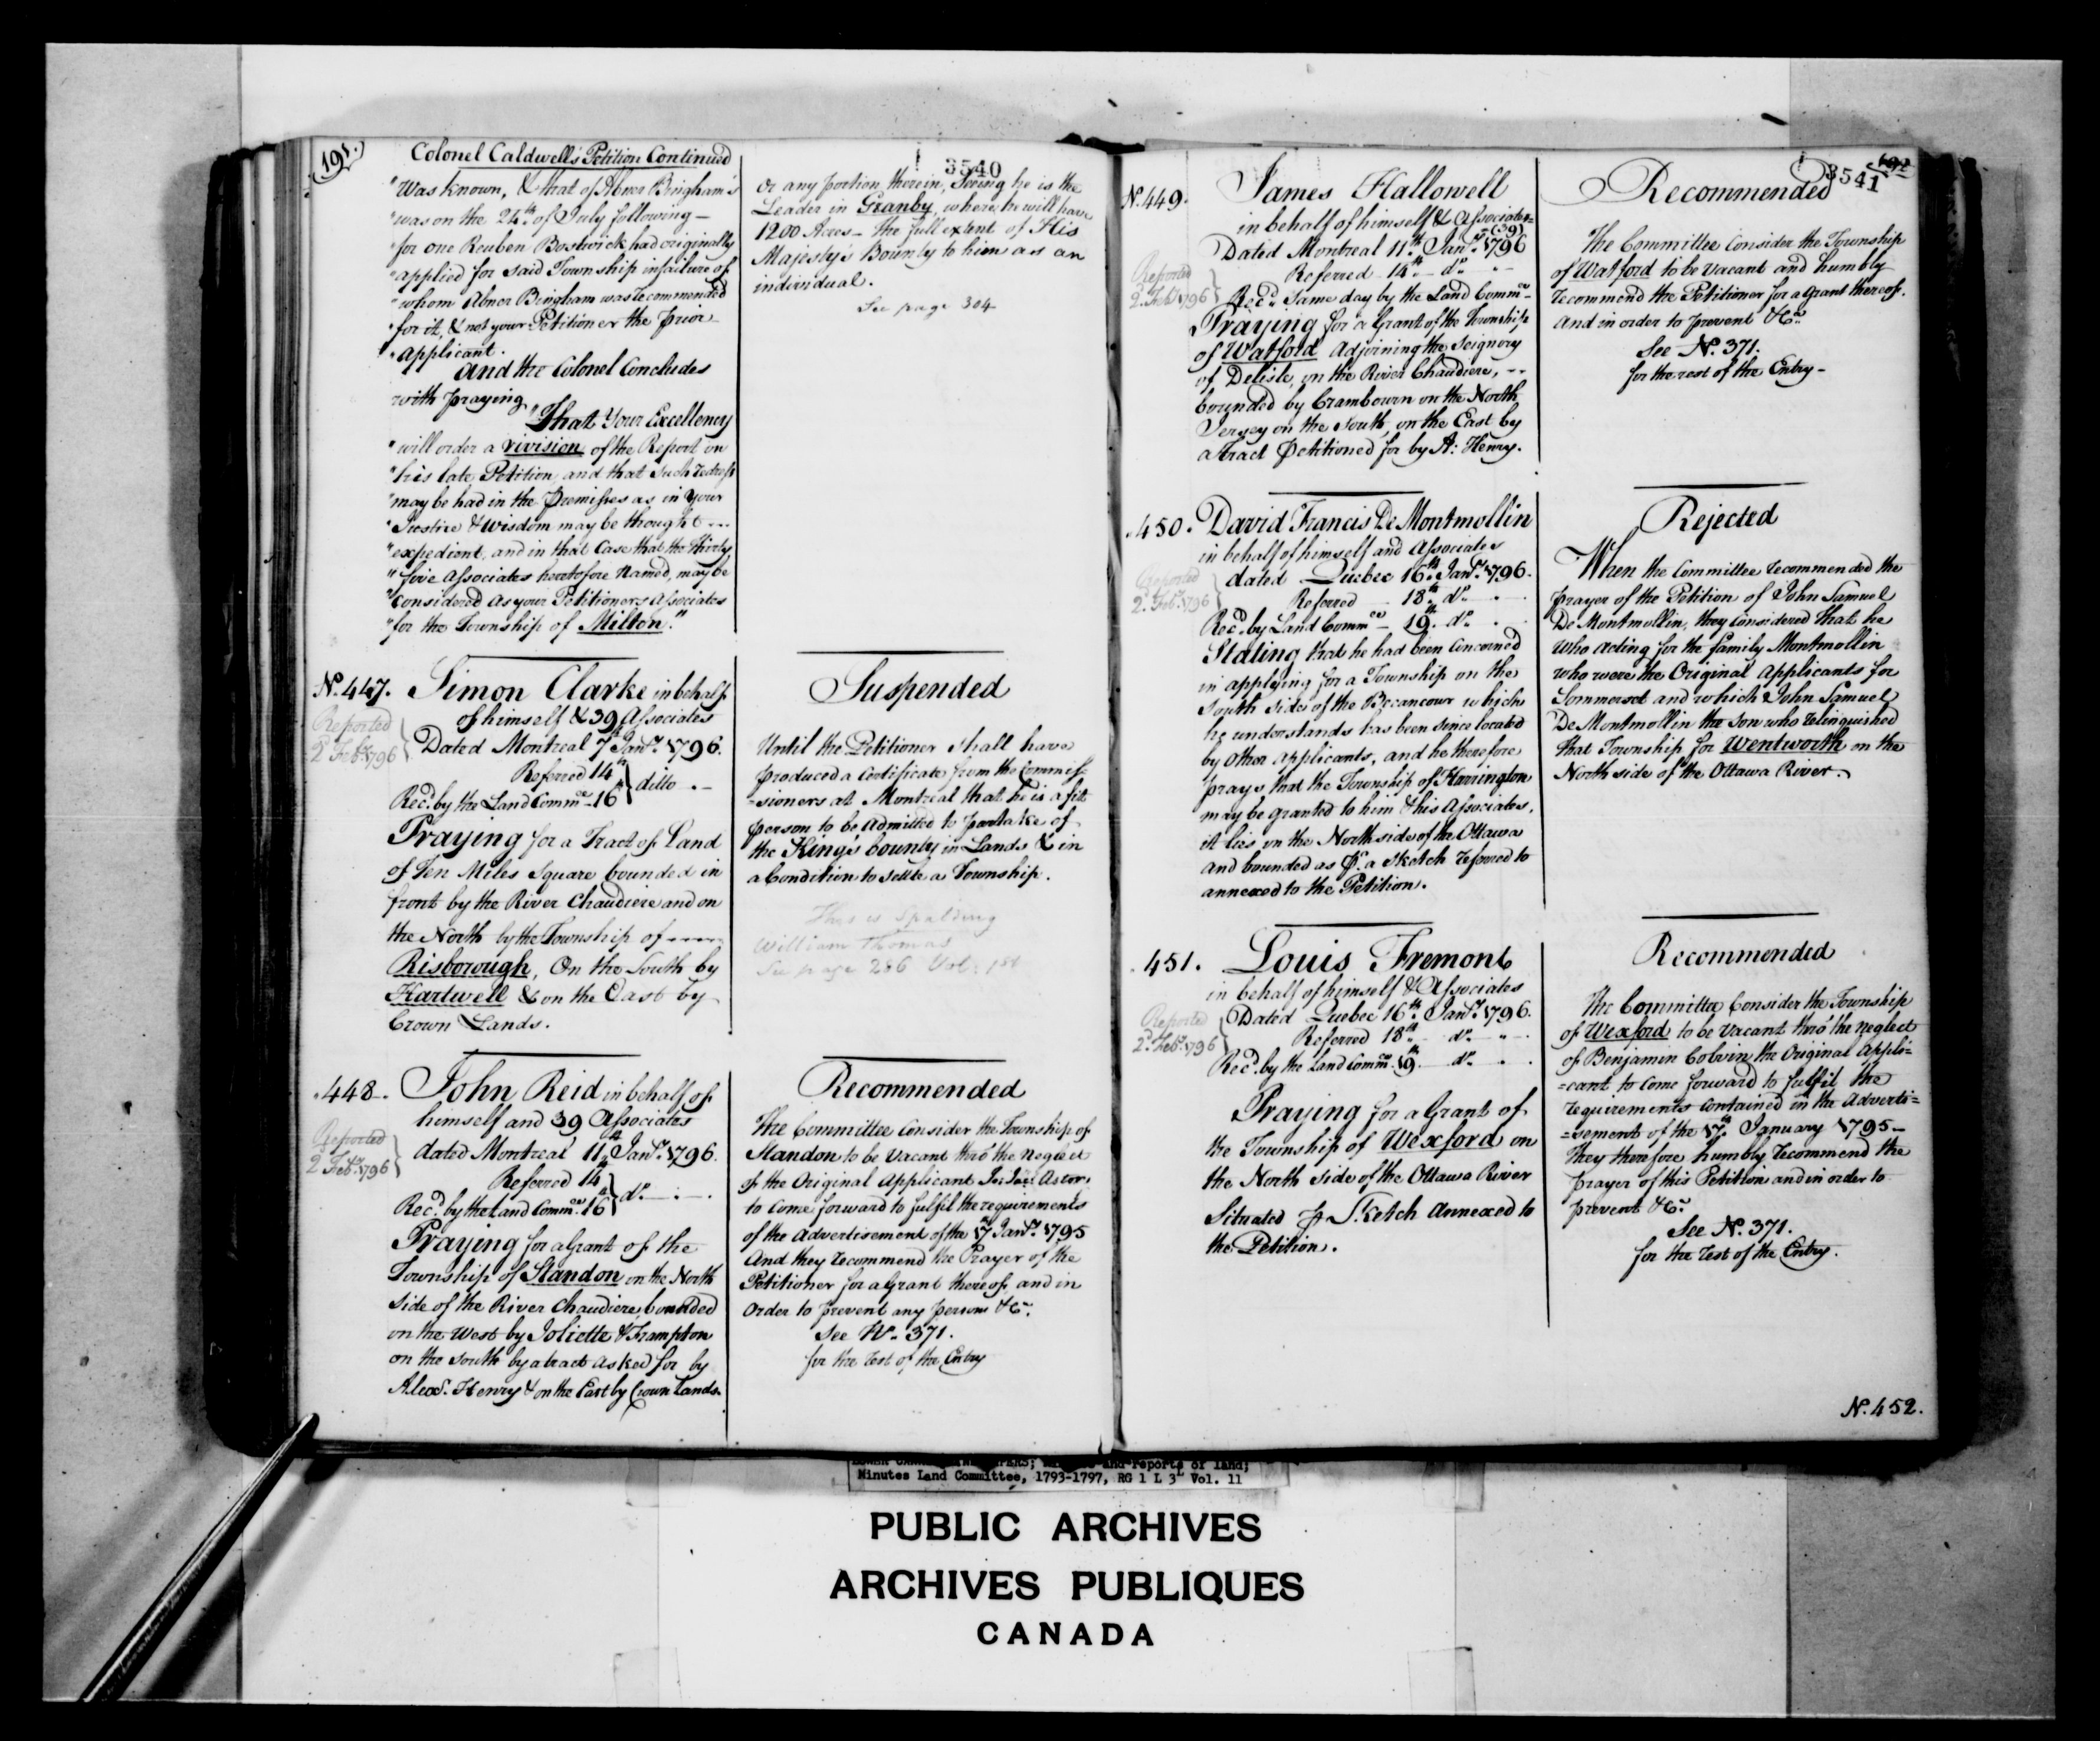 191.
Colonel Caldwell's Petition Continued
"Was known, & that of Abner Bingham's
"was on the 24th of July following —
"for one Reuben Bostwick had originally
"applied for said Township in failure of
"whom Abner Bingham was recommended
"for it, & not your Petitioner the prior
"applicant.
and the Colonel Concludes
with praying
"That Your Excellency
"will order a revision of the Report on
"his late Petition, and that such redress
"may be had in the Premisses as in your
"Justice & Wisdom may be thought ---
"expedient, and in that Case that the thirty
"five Associates heretofore Named, may be
"Considered as your Petitioners Associates
"for the Township of Milton."
3540
or any portion therein, Seeing he is the
Leader in Granby, where he will have
1200 Acres — the full extent of His
Majesty's Bounty to him as an
individual.
See page 304
No. 447. Simon Clarke in behalf
of himself & 39 Associates
Reported
2 Feby. 1796
Dated Montreal 7th Jany. 1796.
Referred 14th
Recd. by the Land Commee. 16 } ditto . —
Praying for a Tract of Land
of Ten Miles Square bounded in
front by the River Chaudiere and on
the North by the Township of ----
Risborough, On the South by
Hartwell & on the East by
Crown Lands.
Suspended
Until the Petitioner shall have
produced a Certificate from the Commis-
=sioners at Montreal that he is a fit
person to be admitted to partake of
the King's bounty in Lands & in
a Condition to settle a Township.
This is Spalding
William Thomas
See page 286 Vol: 1st
448. John Reid in behalf of
himself and 39 Associates
Reported
2 Feby. 1796
dated Montreal 11th Jany. 1796.
Referred 14th
Recd. by the Land Commee. 16th } do. — . — .
Praying for a Grant of the
Township of Standon on the North
side of the River Chaudiere bounded
on the West by Joliette & Frampton
on the South by a tract asked for by
Alexr. Henry & on the East by Crown Lands.
Recommended
The Committee Consider the Township of
Standon to be Vacant thro' the neglect
of the Original Applicant Astor,
to Come forward to fulfil the requirements
of the Advertisement of the 17th Jany. 1795
And they recommend the Prayer of the
Petitioner for a Grant thereof and in
Order to prevent any persons &Ca.
See No. 371.
for the rest of the Entry
192
3541
No. 449. James Hallowell
in behalf of himself & Associates
(39)
Dated Montreal 11th Jany. 1796
Referred 14th — do. - -
Reported
2. Feby. 1796
Recd. Same day by the Land Commee.
Praying for a Grant of the Township
of Watford Adjoining the Seignory
of Delisle, on the River Chaudiere, --
bounded by Crambourn on the North
Jersey on the South, on the East by
a Tract Petitioned for by A: Henry.
Recommended
The Committee Consider the Township
of Watford to be Vacant and humbly
recommend the Petitioner for a Grant thereof.
And in order to prevent &Ca.
See No. 371.
for the rest of the Entry —
450. David Francis De Montmollin
in behalf of himself and Associates
Reported
2. Feby. 1796
dated Quebec 16th Jany. 1796.
Referred 18th do. .
Recd. by Land Commee. — 19th do. .
Stating that he had been Concerned
in applying for a Township on the
South side of the Becancour which
he understands has been since located
by other applicants, and he therefore
prays, that the Township of Harrington
may be granted to him & his Associates,
it lies on the North side of the Ottawa
and bounded as Pr. a Sketch referred to
annexed to the Petition.
Rejected
When the Committee recommended the
prayer of the Petition of John Samuel
De Montmollin, they Considered that he
Who acting for the family Montmollin
who were the Original Applicants for
Sommerset and which John Samuel
De Montmollin the son who relinquished
that Township for Wentworth on the
North side of the Ottawa River.
451. Louis Fremont
in behalf of himself & Associates
Reported
2d. Feby. 1796
Dated Quebec 16th Jany. 1796.
Referred 18th do. " .
Recd. by the Land Commee. 19th do. .
Praying for a Grant of
the Township of Wexford on
the North Side of the Ottawa River
Situated Pr Sketch Annexed to
the Petition.
Recommended
The Committee Consider the Township
of Wexford to be vacant thro' the neglect
of Benjamin Colvin the Original Appli=
=cant to Come forward to fulfil the
requirements contained in the Adverti=
=sement of the 17th January 1795 —
They therefore humbly recommend the
prayer of this Petition and in order to
prevent &Ca.
See No. 371.
for the rest of the Entry.
No. 452.
and reports of land;
Minutes Land Committee, 1793-1797, RG 1 L 3L Vol. 11
PUBLIC ARCHIVES
ARCHIVES PUBLIQUES
CANADA